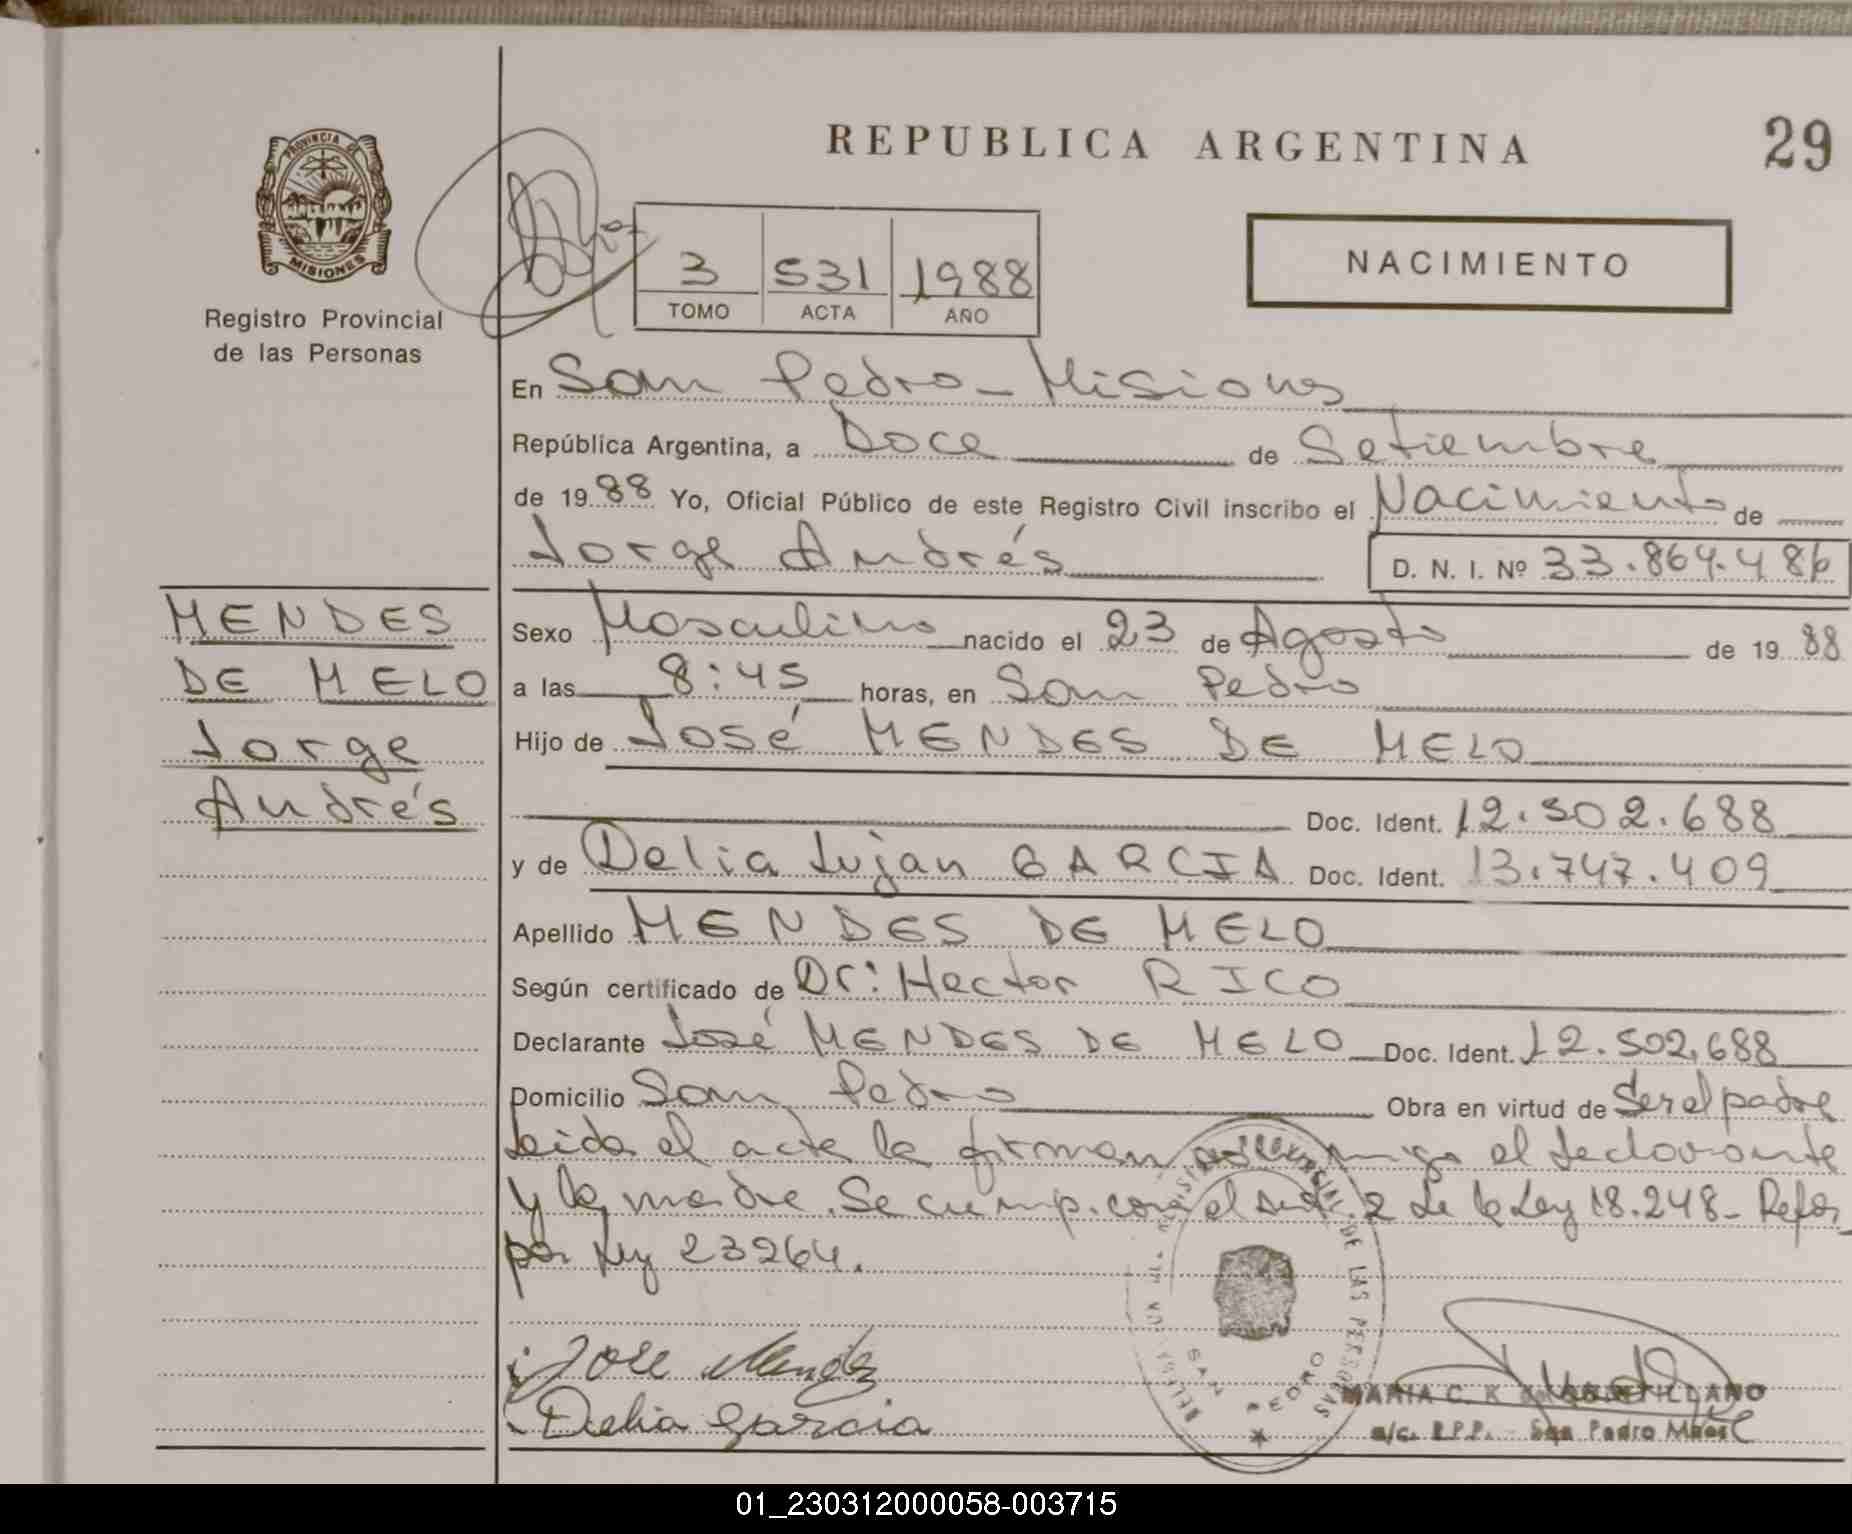 REPUBLICA ARGENTINA
29
PROVINCIA DE
MISIONES
Registro Provincial
de las Personas
3 531 1988
TOMO ACTA AÑO
NACIMIENTO
En San Pedro - Misiones
República Argentina, a Doce de Setiembre
de 19 88 Yo, Oficial Público de este Registro Civil inscribo el Nacimiento de
Jorge Andrés
D. N. I. Nº 33.864.486
MENDES
DE MELO
Jorge
Andrés
Sexo Masculino nacido el 23 de Agosto de 19 88
a las 8:45 horas, en San Pedro
Hijo de José MENDES DE MELO
Doc. Ident. 12.502.688
y de Delia Lujan GARCIA Doc. Ident. 13.747.409
Apellido MENDES DE MELO
Según certificado de Dr: Hector RICO
Declarante José MENDES DE MELO Doc. Ident. 12.502.688
Domicilio San Pedro Obra en virtud de Ser el padre
Leida el acta la firman conmigo el declarante
y la madre. Se cump. con el art. 2 de la Ley 18.248 - Refor
por Ley 23264.
Jose Mendez
Delia Garcia
PROVINCIAL DE LAS PERSONAS
SAN PEDRO
MARIA C. K.
a/c. R.P.P. - San Pedro Mnes
01_230312000058-003715